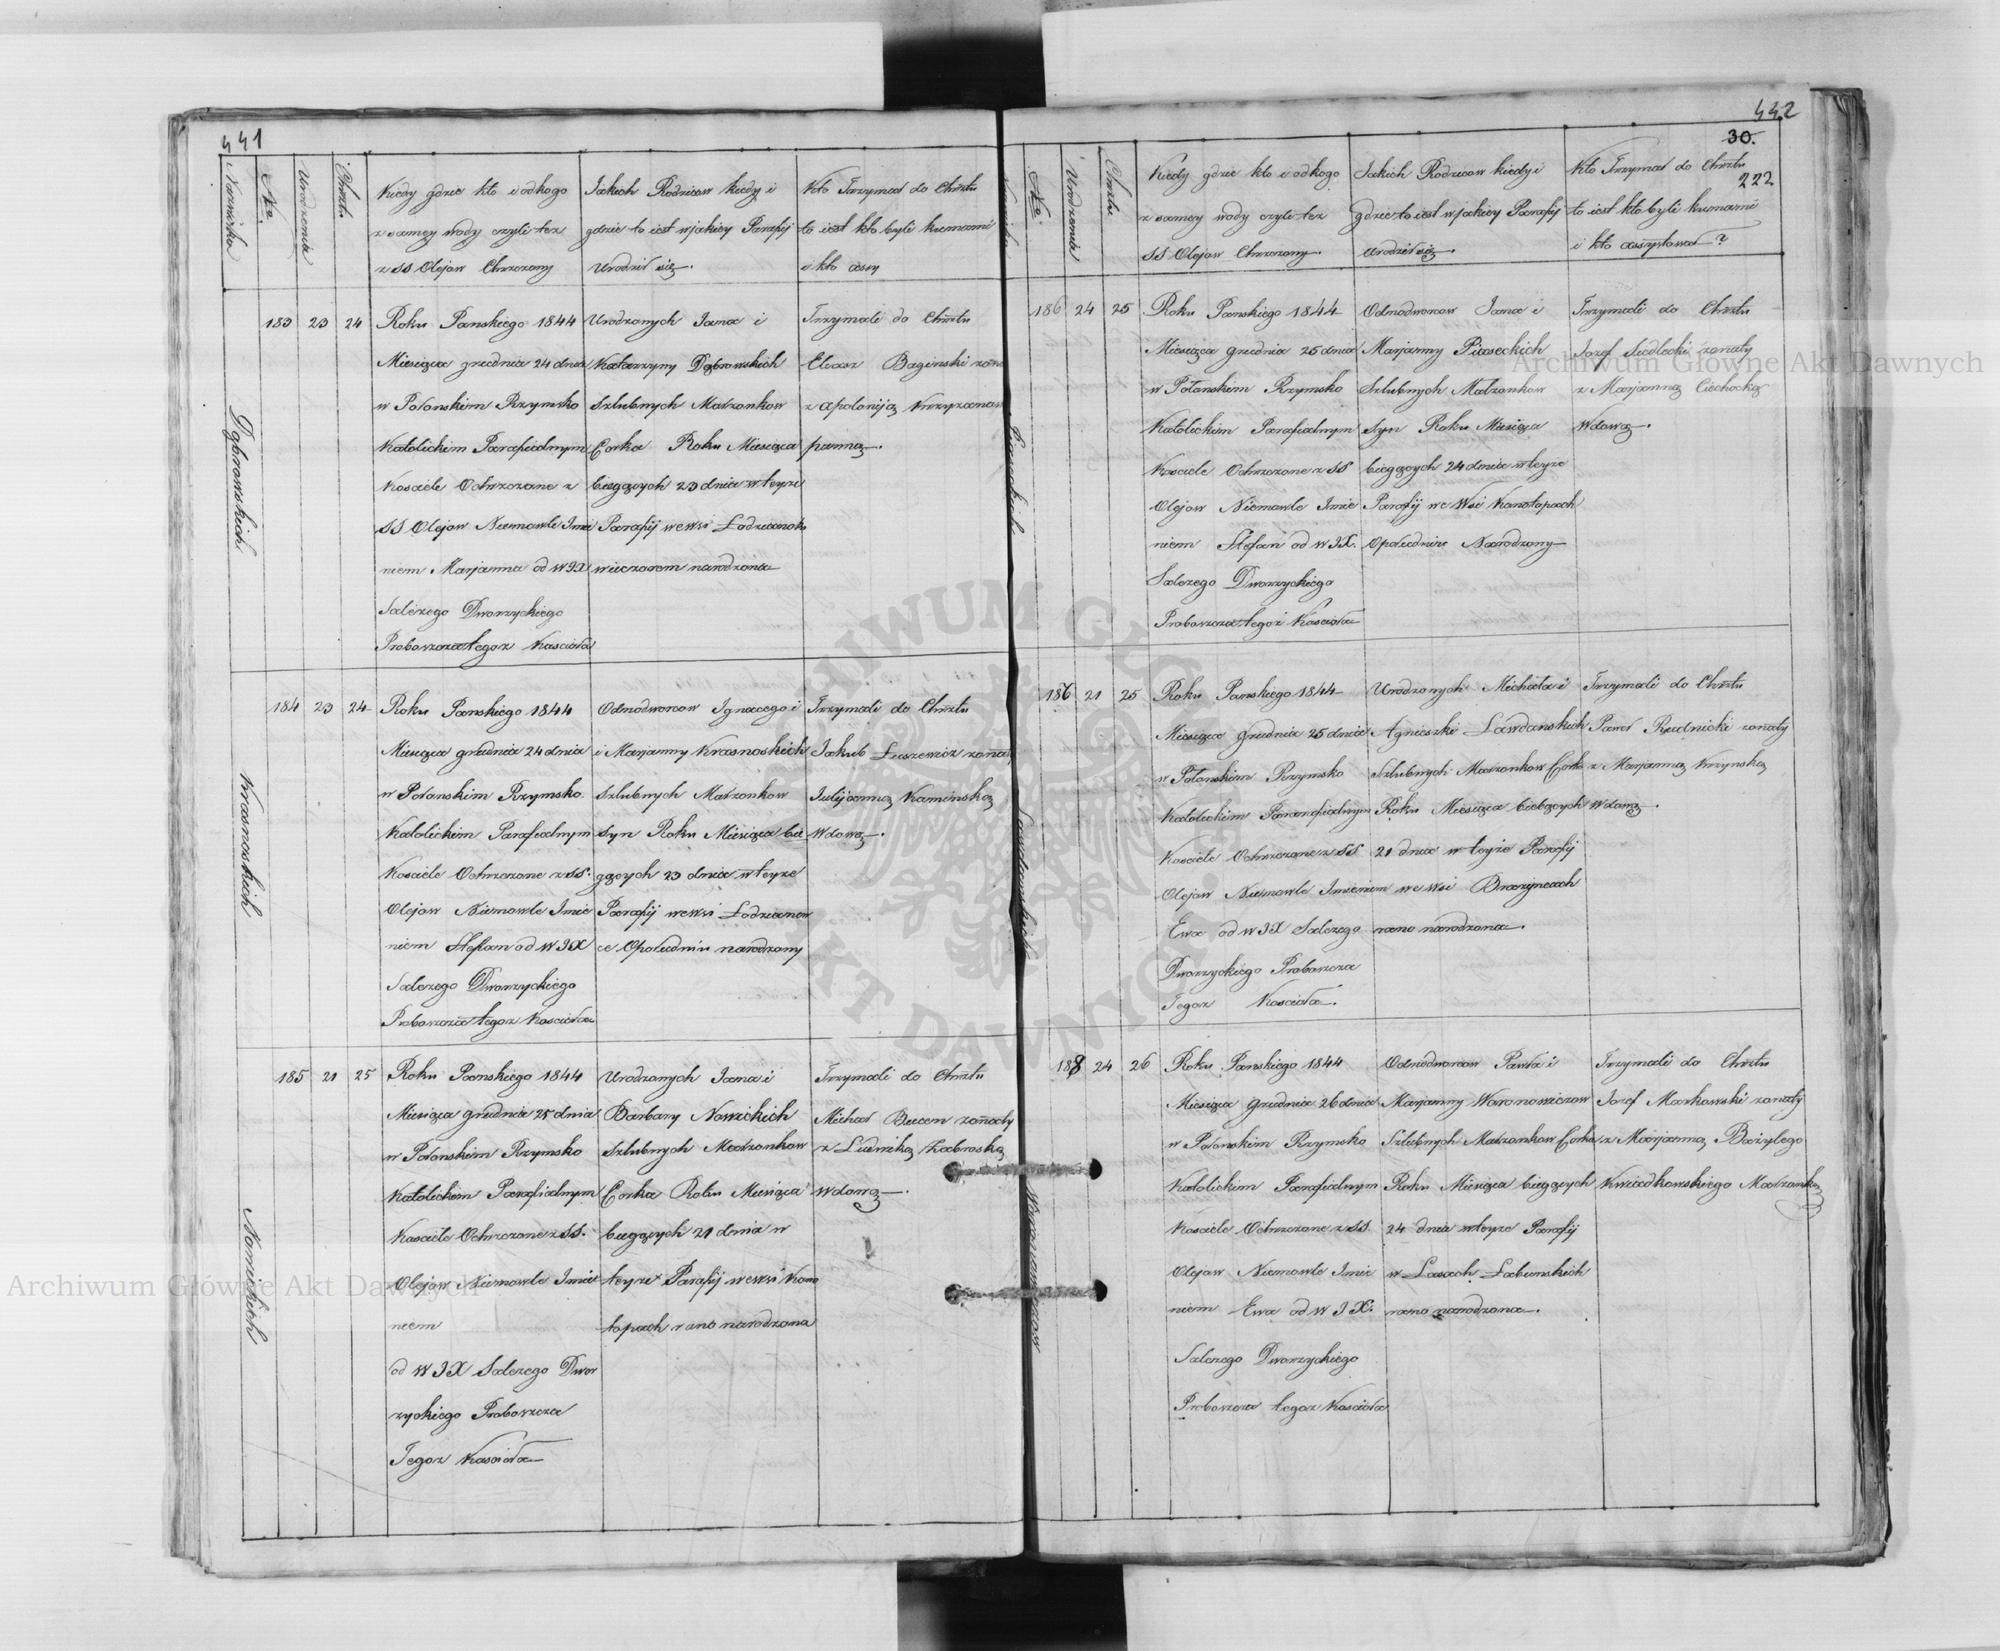 441
Nazwisko
No.
Urodzenia
Chrztu
Kiedy gdzie kto i odkogo
z samey wody czyli tez
z SS Olejow Chrzczony
Jakich Rodzicow kiedy i
gdzie to iest w jakiey Parafij
Urodził się.
Kto Trzymał do Chrztu
to iest kto byli kumami
i kto assy
Dąbrowskich
183 23 24
Roku Panskiego 1844
Miesiąca grudnia 24 dnia
w Połonskim Rzymsko
Katolickim Parafialnym
Kosciele Ochrzczone z
SS Olejow Niemowle Imie
niem Marjanna od W JX
Salezego Dworzyckiego
Proboszcza tegoz Koscioła
Urodzonych Jana i
Katarzyny Dąbrowskich
Szlubnych Małzonkow
Corka Roku Miesiąca
bieązcych 23 dnia w teyze
Parafij we wsi
wieczorem narodzona
Trzymali do Chrztu
Eliasz Baginski
z Apoloniją
panną.
Krasnoskich
184 23 24
Roku Panskiego 1844
Miesiąca grudnia 24 dnia
w Połonskim Rzymsko
Katolickim Parafialnym
Kosciele Ochrzczone z SS.
Olejow Niemowle Imie
niem Stefan od W JX
Salezego Dworzyckiego
Proboszcza tegoz Koscioła
Odnodworcow Ignacego i
i Marjanny Krasnoskich
Szlubnych Małzonkow
Syn Roku Miesiąca bie
gących 23 dnia w teyze
Parafij we wsi Łodzianow
ce Opołudniu narodzony
Trzymali do Chrztu
Jakub Łuszewicz
Julijanną Kaminską
Wdową.
Nowickich
185 21 25
Roku Panskiego 1844
Miesiąca grudnia 25 dnia
w Połonskim Rzymsko
Katolickim Parafialnym
Kosciele Ochrzczone z SS.
Olejow Niemowle Imie
niem
od W JX Salezego Dwor
zyckiego Proboszcza
Tegoz Koscioła
Urodzonych Jana i
Barbary Nowickich
Szlubnych Małzonkow
Corka Roku Miesiąca
biegących 21 dnia w
teyze Parafij we wsi Kono
topach rano narodzona
Trzymali do Chrztu
Michał Bucen zonaty
z Ludwiką Zabroską
Wdową.
442
30.
222
Nazwisko
No.
Urodzenia
Chrztu
Kiedy gdzie kto i odkogo
z samey wody czyli tez
SS Olejow Chrzczony.
Jakich Rodzicow kiedy i
gdzie to iest w jakiey Parafij
urodził się.
Kto Trzymał do Chrztu
to iest kto byli kumami
i kto assystował?
Piaseckich
186 24 25
Roku Panskiego 1844
Miesiąca grudnia 25 dnia
w Połonskim Rzymsko
Katolickim Parafialnym
Kosciele Ochrzczone z SS
Olejow Niemowle Imie
niem Stefan od W JX.
Salezego Dworzyckiego
Proboszcza tegoż Kosciola
Odnodworcow Jana i
Marjanny Piaseckich
Szlubnych Małzonkow
Syn Roku Miesiąca
biegących 24 dnia w teyze
Parafij we Wsi Konotopach
Opołudniu Narodzony
Trzymali do Chrztu
Jozef Siedlecki zonaty
z Marjanną Ciechocką
Wdową.
Lawdanskich
186 21 25
Roku Panskiego 1844
Miesiąca Grudnia 25 dnia
w Połonskim Rzymsko
Katolickim Paranafialnym
Kosciele Ochrzczone z SS
Olejow Niemowle Imieniem
Ewa od W JX Salezego
Dworzyckiego Proboszcza
Tegoz Kosciola.
Urodzonych Michała i
Agnieszki Lawdanskich
Szlubnych Małzonkow Corka
Roku Miesiąca biebących
21 dnia w teyże Parafij
we wsi Brazyncach
rano narodzona.
Trzymali do Chrztu
Paweł Rudnicki zonaty
z Marjanną Krzynską
Wdową.
Woronowiczow
188 24 26
Roku Panskiego 1844
Miesiąca Grudnia 26 dnia
w Połonskim Rzymsko
Katolickim Parafialnym
Kosciele Ochrzczone z SS.
Olejow Niemowle Imie
niem Ewa od W J X.
Salezego Dworzyckiego
Proboszcza tegoz Kosciola
Odnodworcow Pawła i
Marjanny Woronowiczow
Szlubnych Małzonkow Corka
Roku Miesiąca biegących
24 dnia w teyze Parafij
w Lasach Labunskich
rano narodzona.
Trzymali do Chrztu
Jozef Markowski zonaty
z Marjanną Bazylego
Kwiadkowskiego Małzonką
Archiwum Główne Akt Dawnych
Archiwum Główne Akt Dawnych
ARCHIWUM GŁÓWNE AKT DAWNYCH